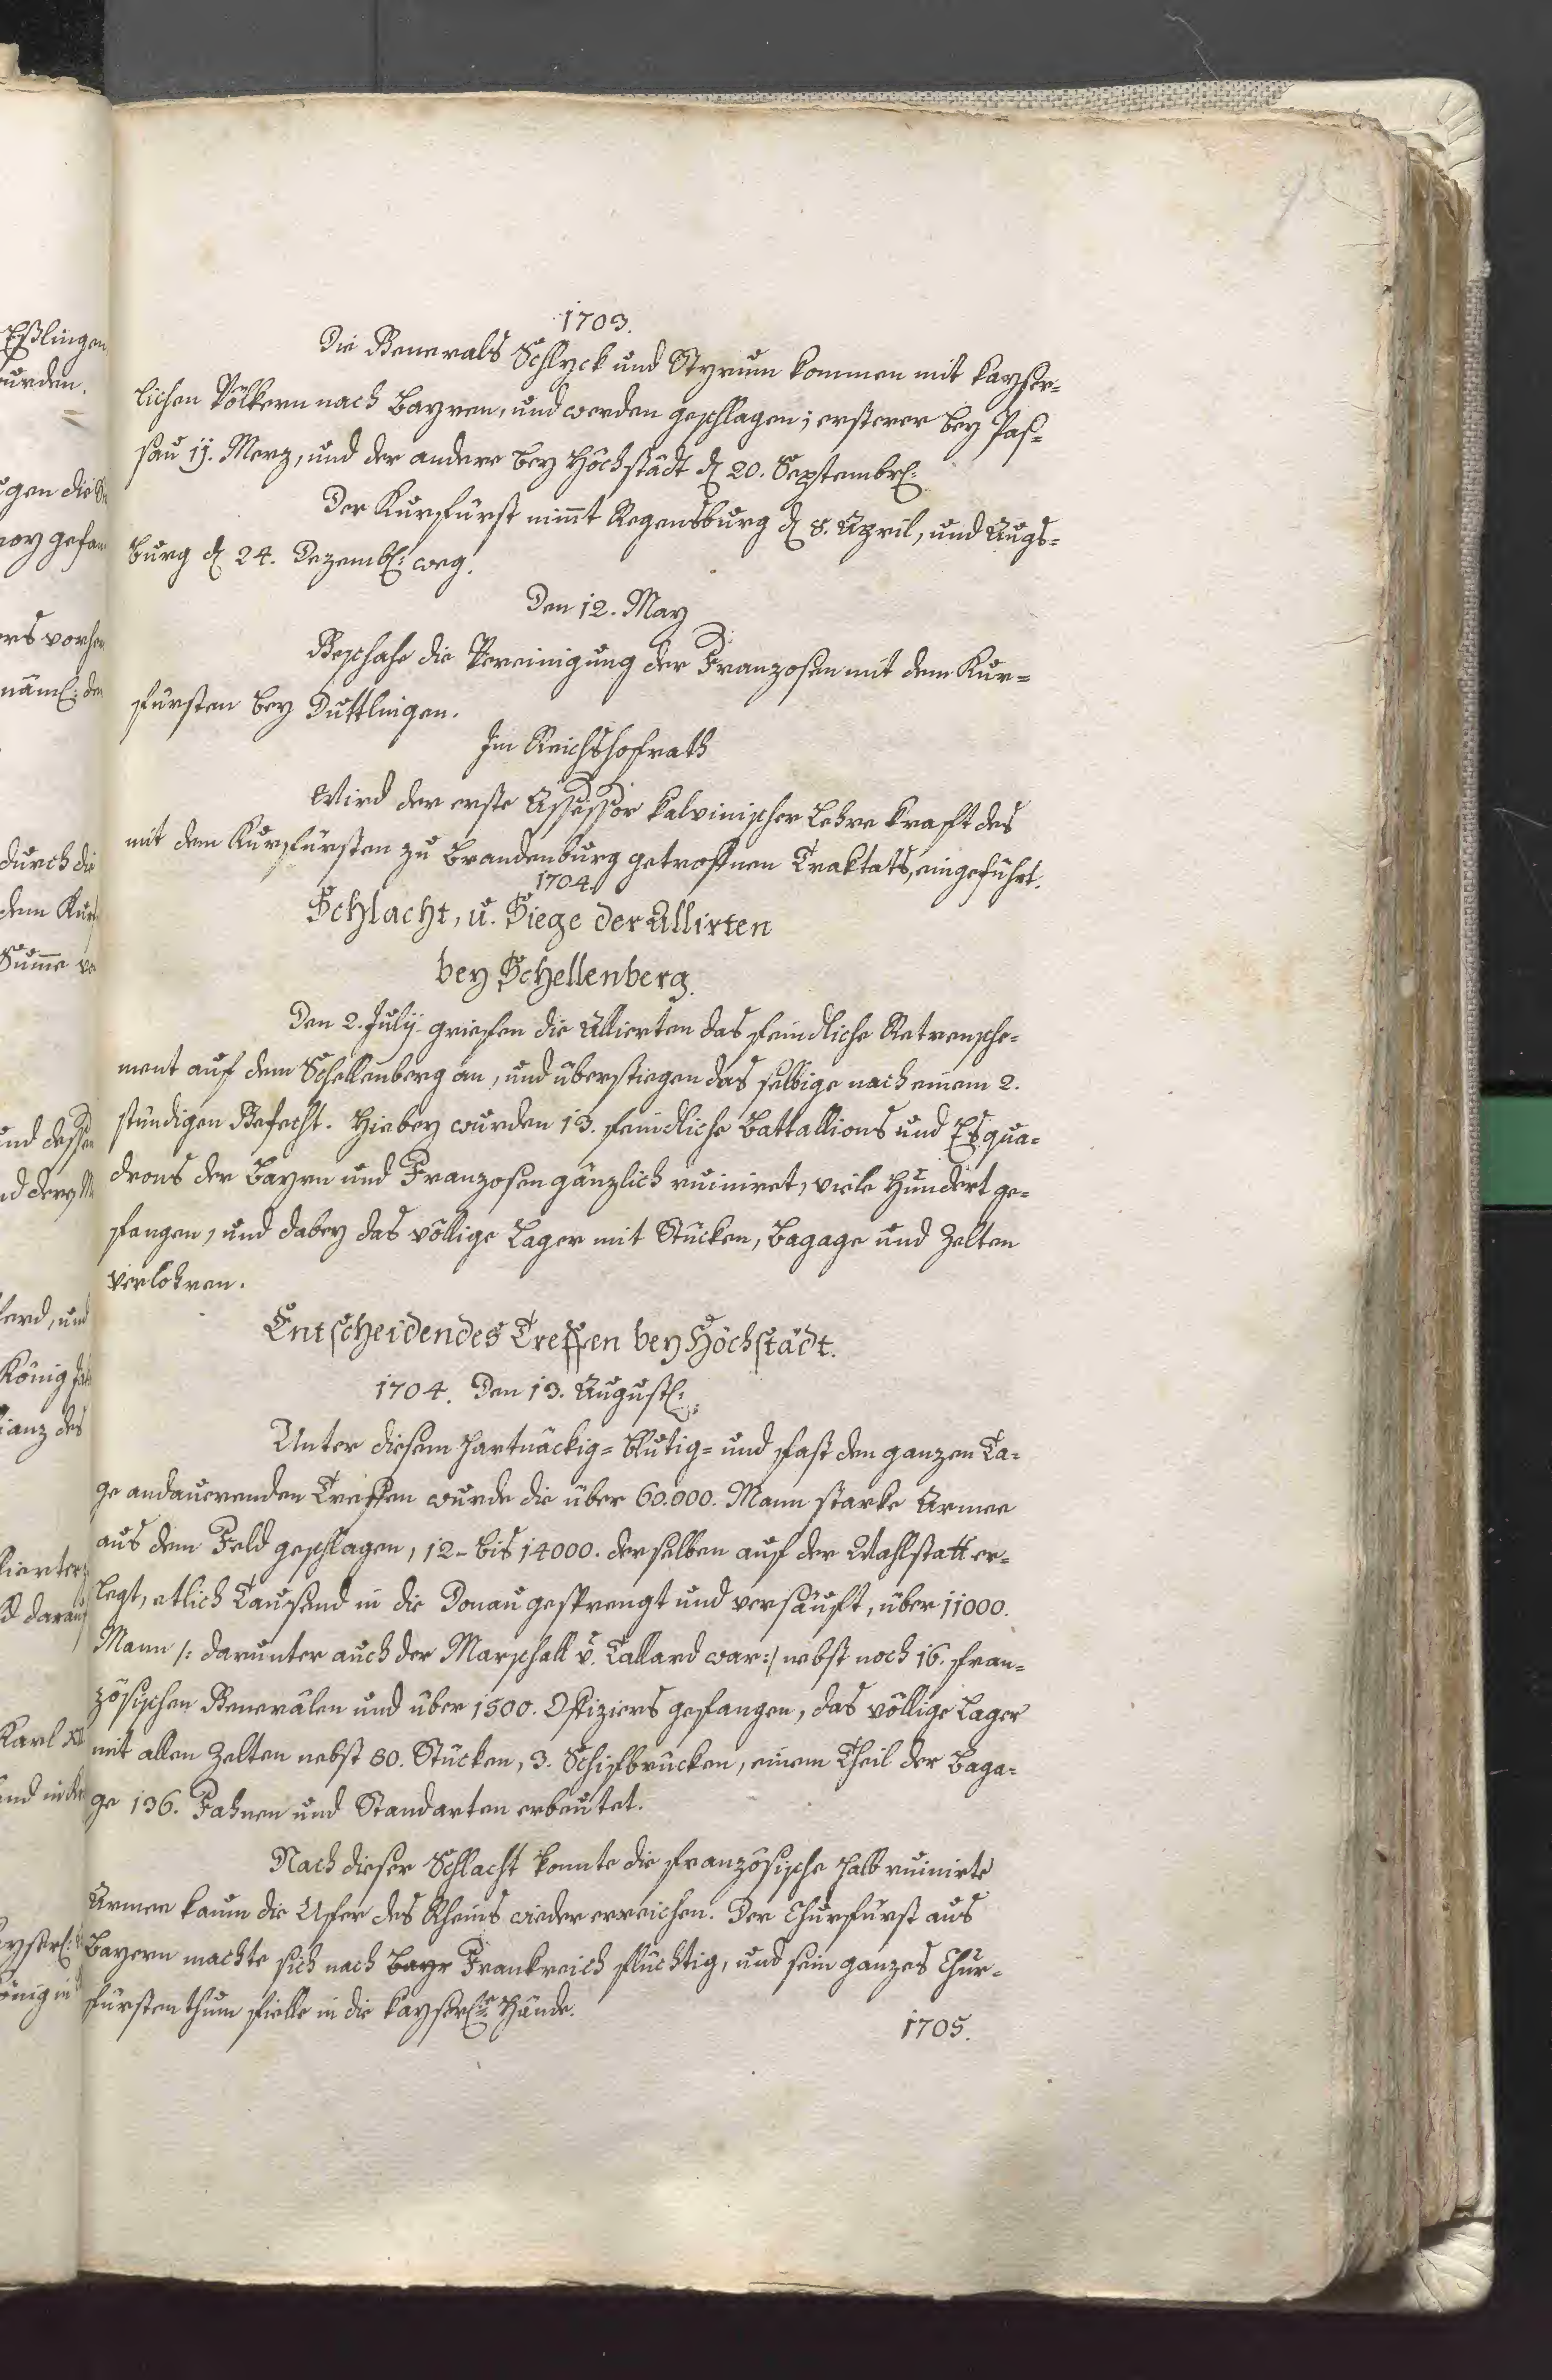 1703.
Die Generals Schlyck und Styrum kommen mit kayser-
lichen Völkern nach Bayren, und werden geschlagen; ersterer bey Pas-
sau 11. Merz, und der andere bey Höchstädt d. 20. Septembr:
Der Kurfürst nim̄t Regensburg d. 8. April, und Augs-
burg d. 24. Dezemb: weg.
Den 12. May
Geschahe die Vereinigung der Franzosen mit dem Kur-
fürsten bey Duttlingen.
Im Reichshofrath
Wird der erste Assessor kalvinischer Lehre kraft des
mit dem Kurfürsten zu Brandenburg getroffnen Traktats, eingeführt.
1704.
Schlacht, u. Siege der Allirten
bey Schellenberg.
Den 2. Julij griefen die Allierten das feindliche Retrensche-
ment auf dem Schellenberg an, und überstiegen das selbige nach einem 2.
stündigen Gefecht. Hiebey wurden 13. feindliche Battallions und Esqua-
drons der Bayrn und Franzosen gänzlich ruiniret, viele Hundert ge-
fangen, und dabey das völlige Lager mit Stücken, Bagage und Zelten
verlohren.
Entscheidendes Treffen bey Höchstädt.
1704. Den 13. August:
Unter diesem hartnäckig- blutig- und fast den ganzen Ta-
ge andaurenden Treffen wurde die über 60.000. Mann starke Armee
aus dem Feld geschlagen, 12- bis 14000. derselben auf der Wahlstatt er-
legt, etlich Tausend in die Donau gesprengt und versäuft, über 11000.
Mann /: darunter auch der Marschall v. Tallard war:/ nebst noch 16. fran-
zösischen Generälen und über 1500. Offiziers gefangen, das völlige Lager
mit allen Zelten nebst 80. Stücken, 3. Schifbrücken, einem Theil der Baga-
ge 136. Fahnen und Standarten erbeutet.
Nach dieser Schlacht konnte die französische halb ruinirte
Armee kaum die Ufer des Rheins wieder erreichen. Der Churfürst aus
Bayern machte sich nach Bayr Frankreich flüchtig, und sein ganzes Chur-
fürstenthum fielle in die kayserl: Hände.
1705.